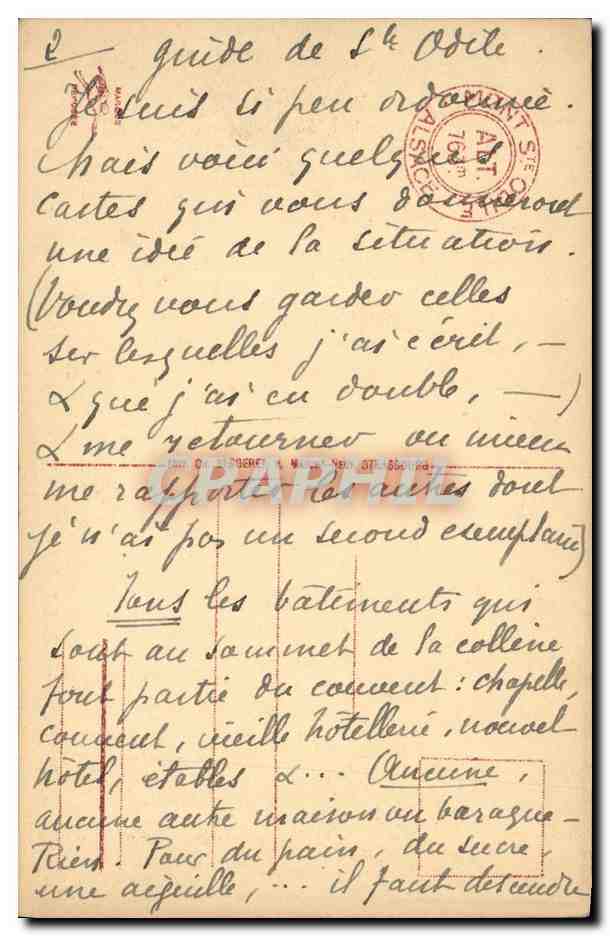 2
guide de Ste Odile.
Je suis si peu ordonnée.
Mais voici quelques
cartes qui vous donneront
une idée de la situation.
(Voudrez vous garder celles
sur lesquelles j'ai écrit, —
& que j'ai en double, —)
& me retourner ou mieux
me rapporter les autres dont
je n'ai pas un second exemplaire)
Tous les bâtiments qui
sont au sommet de la colline
font partie du couvent : chapelle,
couvent, vieille hôtellerie, nouvel
hôtel, étables &... Aucune,
aucune autre maison ou baraque —
Rien. Pour du pain, du sucre,
une aiguille, ... il faut descendre
MONT STE ODILE
ALSACE
ALT.
761m
STRASBOURG
CPAPHIL.com